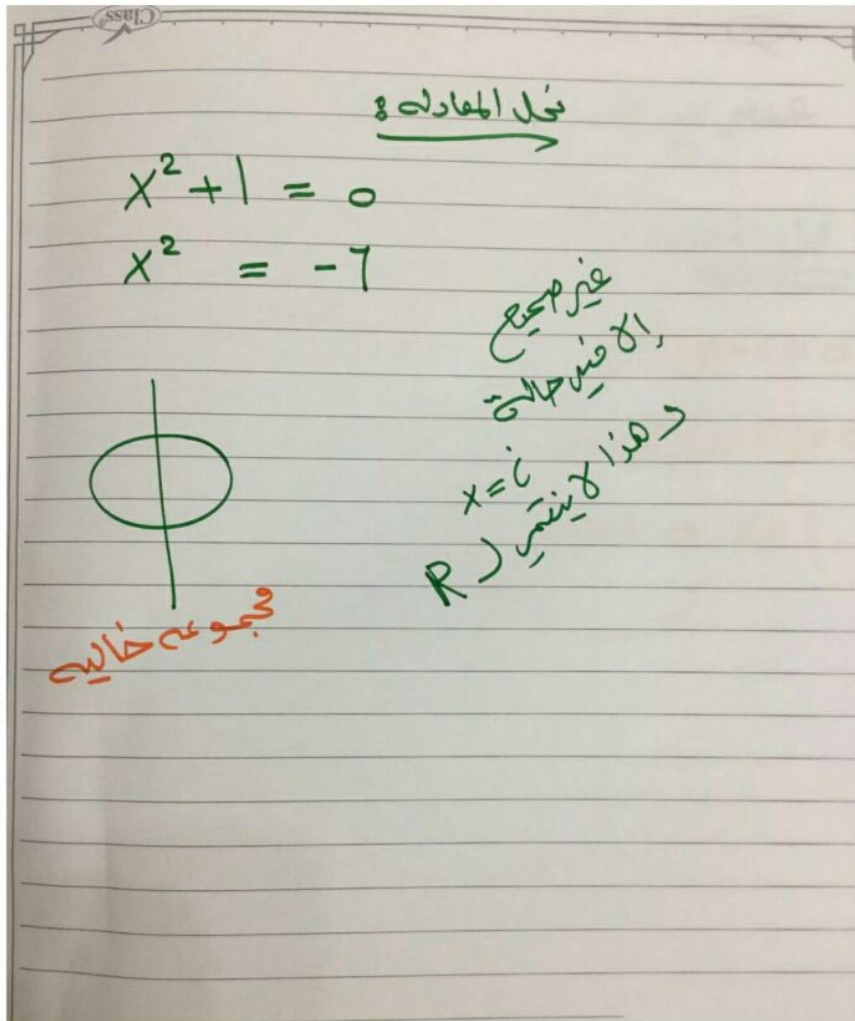 Class
نحل المعادله :
x² + 1 = 0
x² = -1
غير صحيح
إلا في حالة
x = i
وهذا لا ينتمي لـ R
مجموعه خاليه